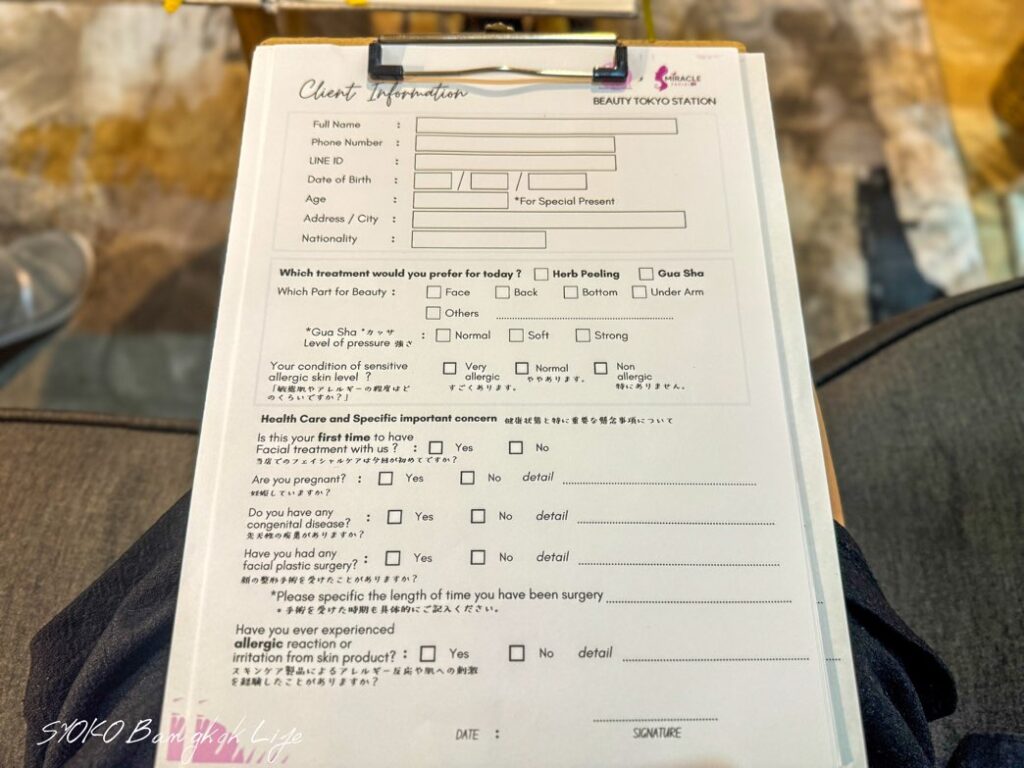 Client Information
MIRACLE
BEAUTY TOKYO STATION
Full Name :
Phone Number :
LINE ID :
Date of Birth : / /
Age : *For Special Present
Address / City :
Nationality :
Which treatment would you prefer for today ? Herb Peeling Gua Sha
Which Part for Beauty : Face Back Bottom Under Arm
Others
*Gua Sha *カッサ : Normal Soft Strong
Level of pressure 強さ
Your condition of sensitive Very Normal Non
allergic skin level ? allergic ややあります。 allergic
「敏感肌やアレルギーの程度はど すごくあります。 特にありません。
のくらいですか?」
Health Care and Specific important concern 健康状態と特に重要な懸念事項について
Is this your first time to have
Facial treatment with us ? : Yes No
当店でのフェイシャルケアは今回が初めてですか?
Are you pregnant? : Yes No detail
妊娠していますか?
Do you have any
congenital disease? : Yes No detail
先天性の疾患がありますか?
Have you had any
facial plastic surgery? : Yes No detail
顔の整形手術を受けたことがありますか?
*Please specific the length of time you have been surgery
* 手術を受けた時期も具体的にご記入ください。
Have you ever experienced
allergic reaction or
irritation from skin product? : Yes No detail
スキンケア製品によるアレルギー反応や肌への刺激
を経験したことがありますか?
DATE : SIGNATURE
SYOKO Bangkok Life